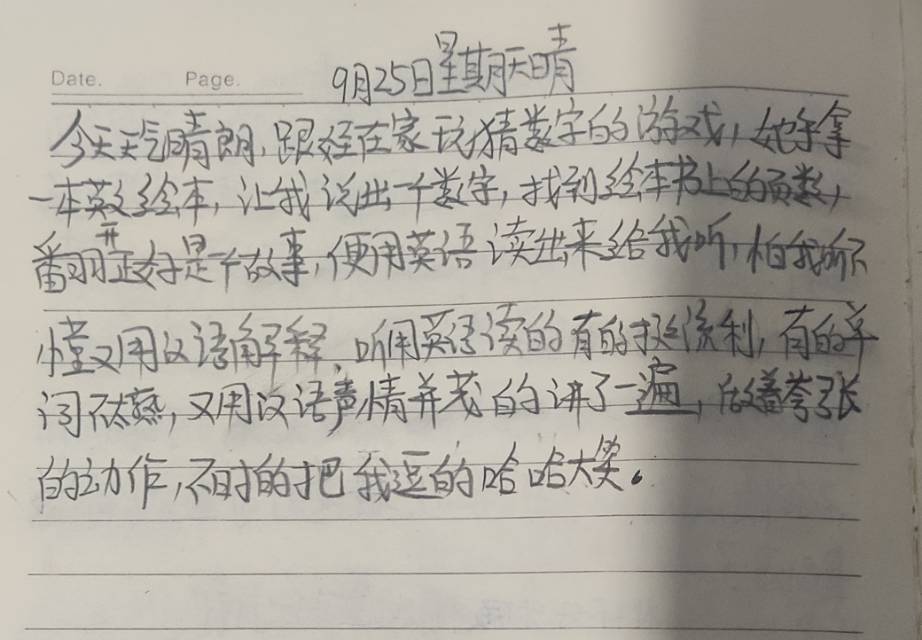 Date. Page. 9月25日星期天晴
今天天气晴朗,跟姪在家玩猜数字的游戏,她手拿
一本英文绘本,让我说出一个数字,找到绘本书上的页数,
番羽开正好是个故事,便用英语读出来给我听,怕我听不
懂又用汉语解释,听用英语读的有的挺流利,有的单
词不太熟,又用汉语声情并茂的讲了一遍,做着夸张
的动作,不时的把我逗的哈哈大笑。